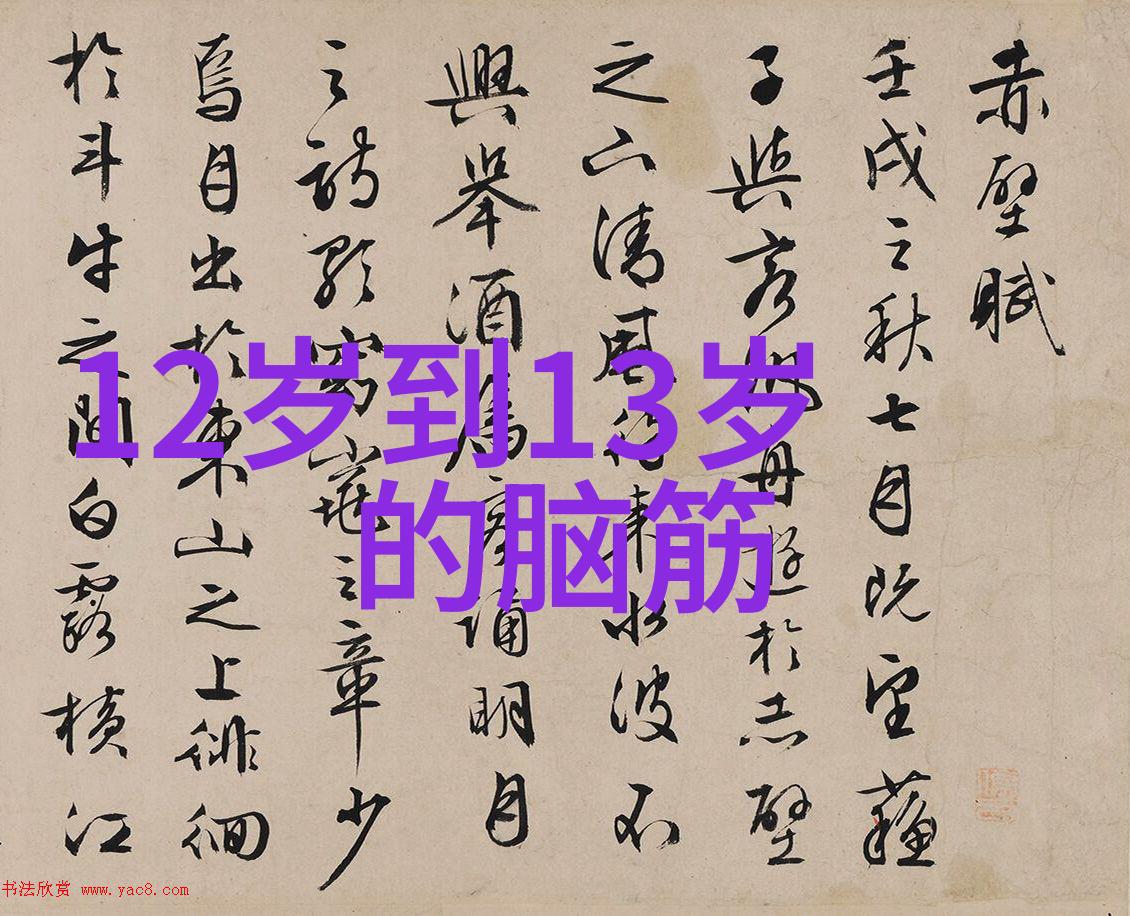 赤壁賦
壬戌之秋七月既望蘇
子與客泛舟遊於赤壁
之下清風徐來水波不
興舉酒屬客誦明月
之詩歌窈窕之章少
焉月出於東山之上徘徊
於斗牛之間白露橫江
12岁到13岁
的脑筋
书法欣赏 www.yac8.com